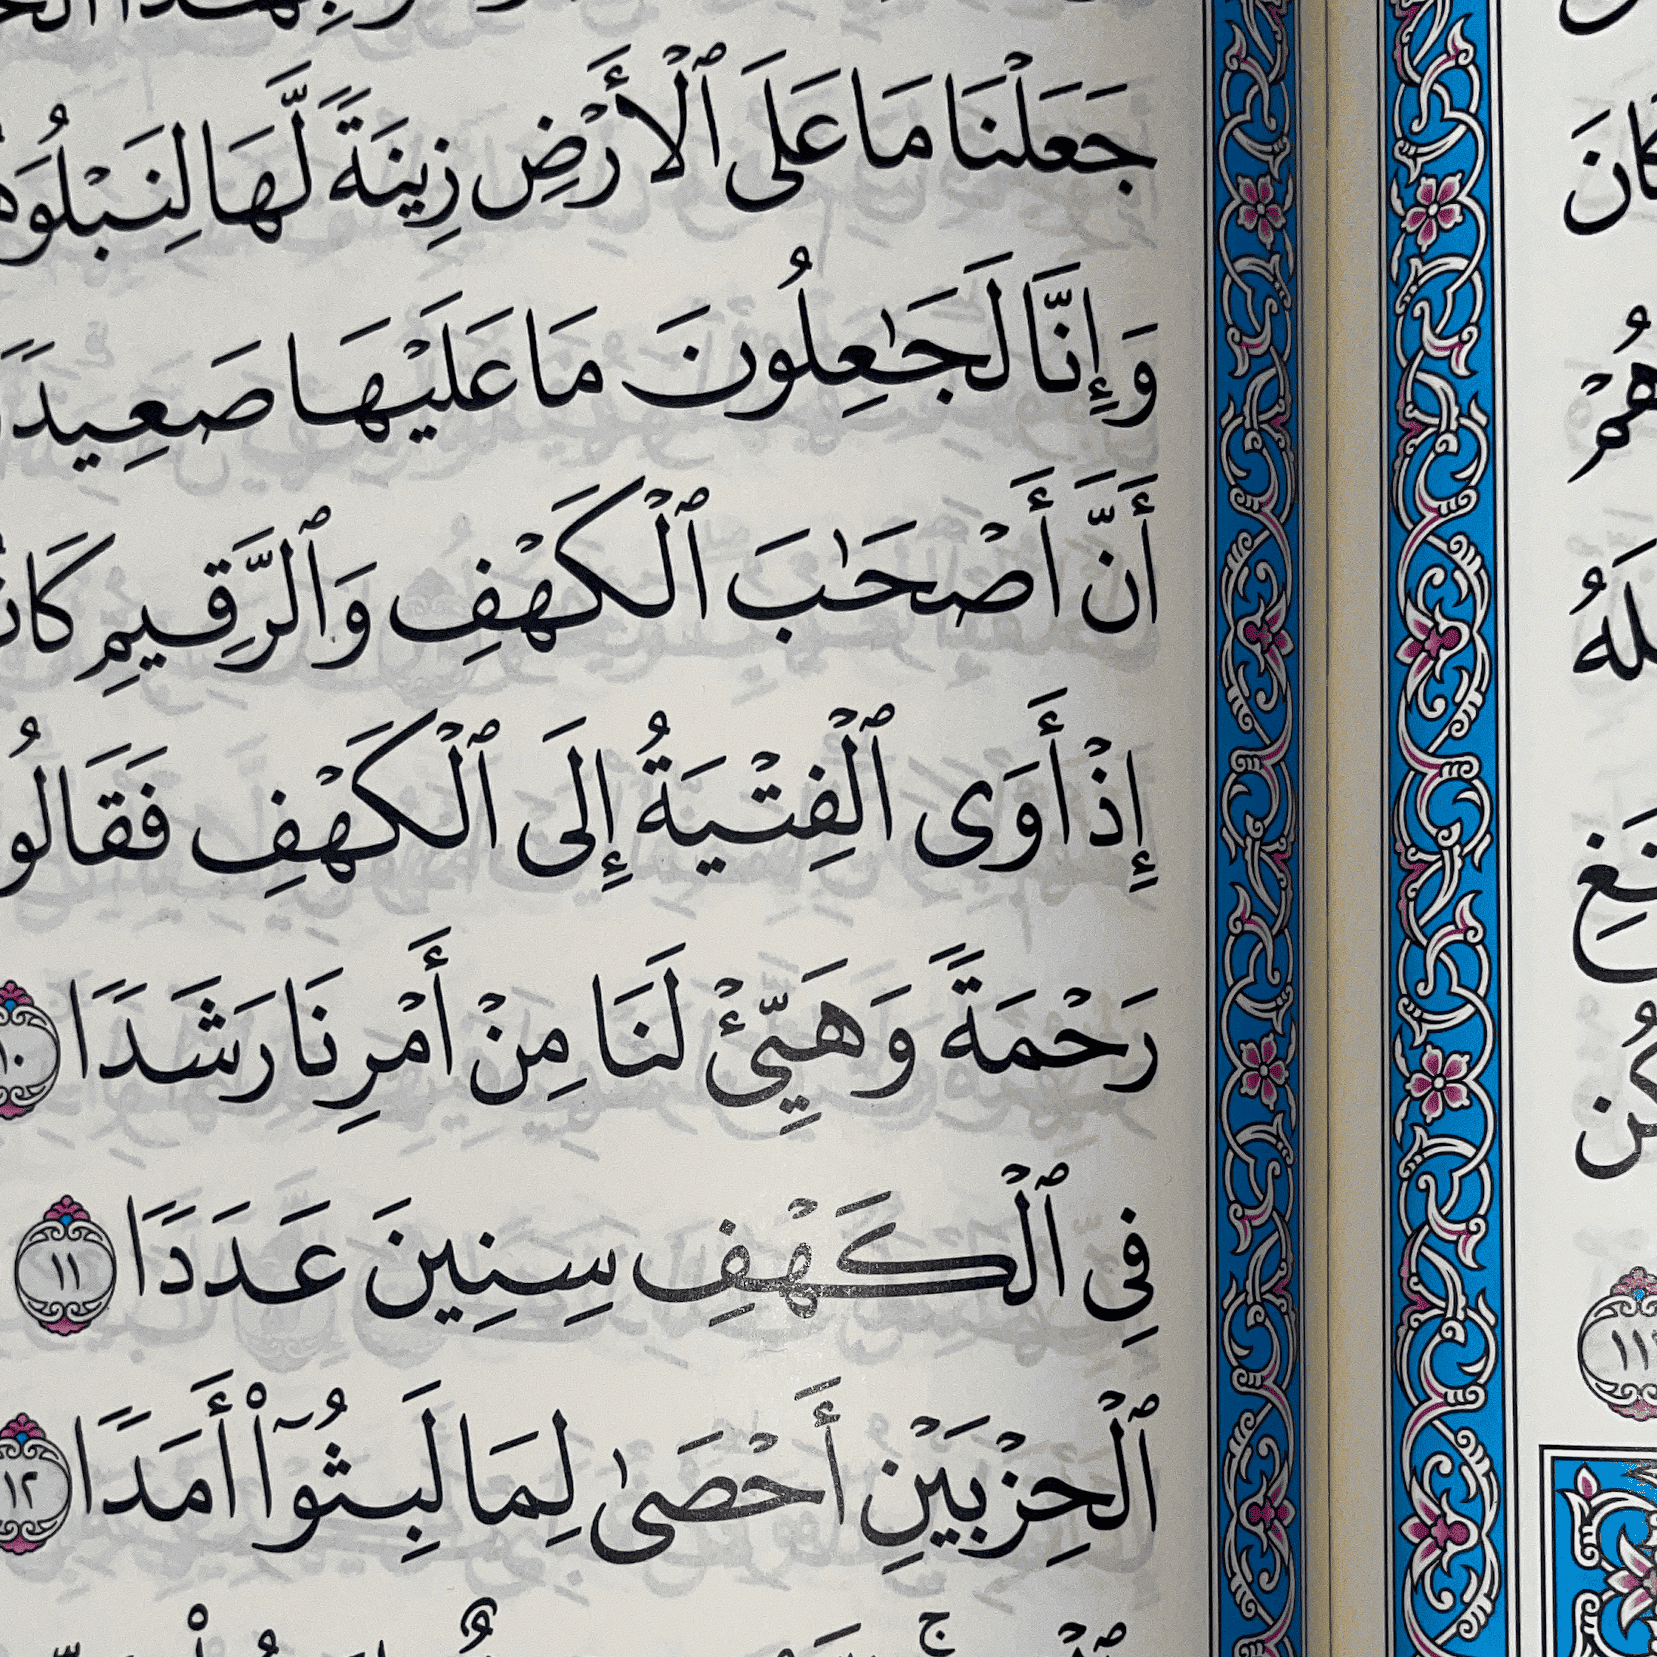 جَعَلْنَا مَا عَلَى ٱلْأَرْضِ زِينَةً لَّهَا لِنَبْلُوَ
وَإِنَّا لَجَٰعِلُونَ مَا عَلَيْهَا صَعِيدًا
أَنَّ أَصْحَٰبَ ٱلْكَهْفِ وَٱلرَّقِيمِ
إِذْ أَوَى ٱلْفِتْيَةُ إِلَى ٱلْكَهْفِ فَقَالُو
رَحْمَةً وَهَيِّئْ لَنَا مِنْ أَمْرِنَا رَشَدًا ١٠
فِى ٱلْكَهْفِ سِنِينَ عَدَدًا ١١
ٱلْحِزْبَيْنِ أَحْصَىٰ لِمَا لَبِثُوٓا۟ أَمَدًا ١٢
كَانَ
هُمْ